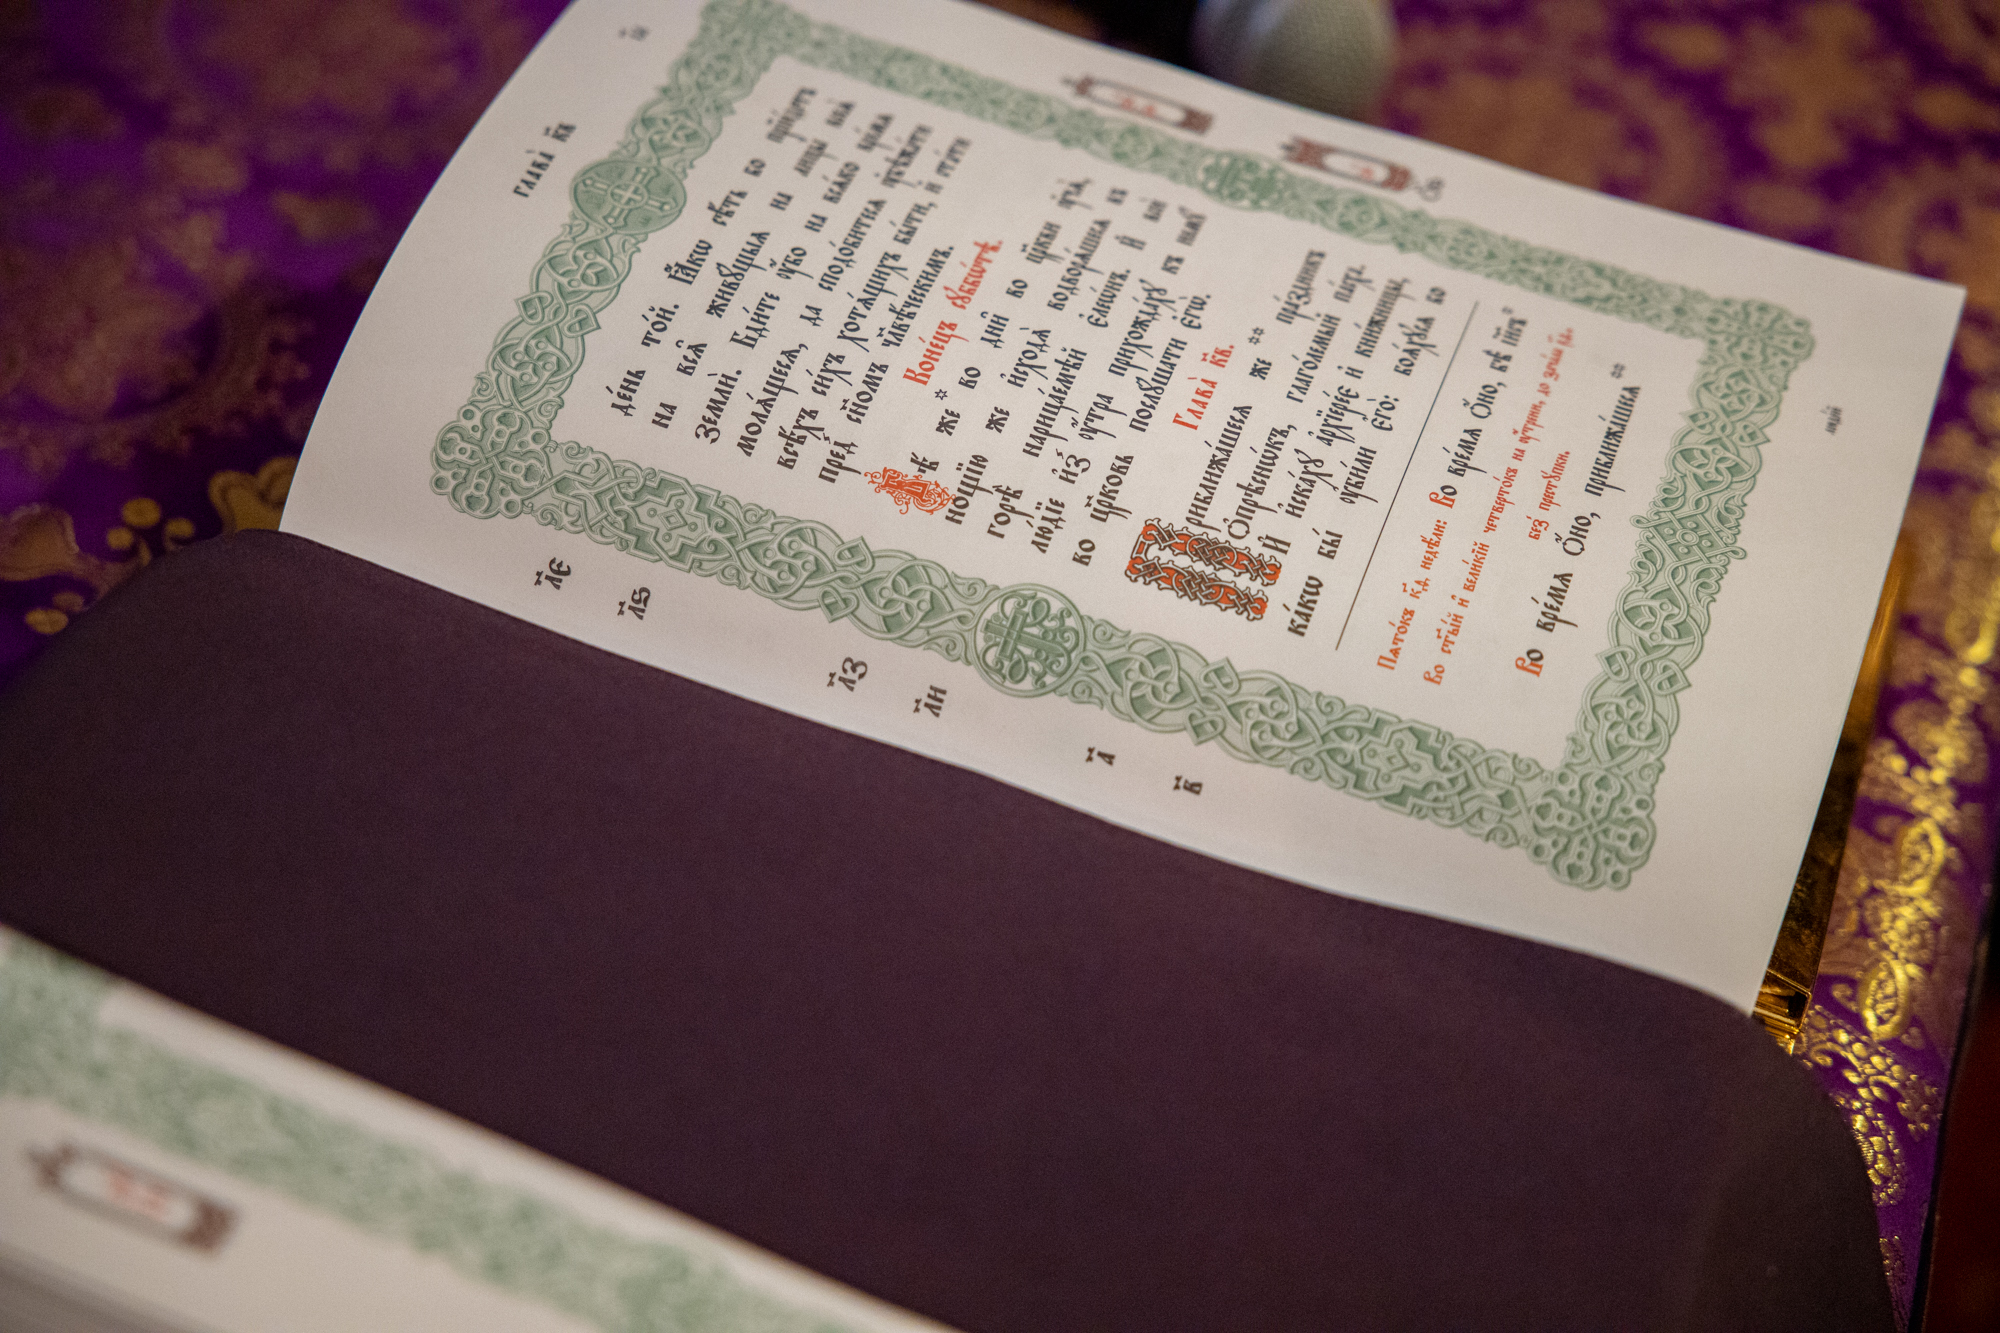 глава̀ к҃в
де́нь то́й. Ꙗ҆́кѡ сѣ́ть бо прїи́детъ
на всѧ̑ живꙋ́щыѧ на лицы̀ всеѧ̀
землѝ. Бди́те ᲂу҆̀бо на всѧ́ко вре́мѧ
молѧ́щесѧ, да сподо́битесѧ ᲂу҆бѣжа́ти
всѣ́хъ си́хъ хотѧ́щихъ бы́ти, и҆ ста́ти
пред̾ сн҃омъ чл҃вѣ́ческимъ.
Коне́цъ сꙋббѡ́тѣ.
Бѣ̀ же во дни̑ во цр҃кви ᲂу҆чѧ̀,
но́щїю же и҆сходѧ̀ водворѧ́шесѧ въ
горѣ̀ нарица́емѣй є҆леѡ́нъ. И҆ всѝ
лю́дїе и҆з̾ ᲂу҆́тра прихожда́хꙋ къ немꙋ̀
во цр҃ковь послꙋ́шати є҆гѡ̀.
Глава̀ к҃в.
Приближа́шесѧ же пра́здникъ
ѡ҆прѣсно́къ, глаго́лемый па́сха.
И҆ и҆ска́хꙋ а҆рхїере́є и҆ кни́жницы,
ка́кѡ бы ᲂу҆би́ли є҆го̀: боѧ́хꙋсѧ бо
Пѧто́къ к҃д. недѣ́ли: Во вре́мѧ ѻ҆́но, бѣ̀ і҆и҃съ
Во ст҃ы́й и҆ вели́кїй четверто́къ на ᲂу҆́трени, до зача́ла
без̾ престꙋ́пки.
Во вре́мѧ ѻ҆́но, приближа́шесѧ
л҃є
л҃ѕ
л҃з
л҃и
а҃
в҃